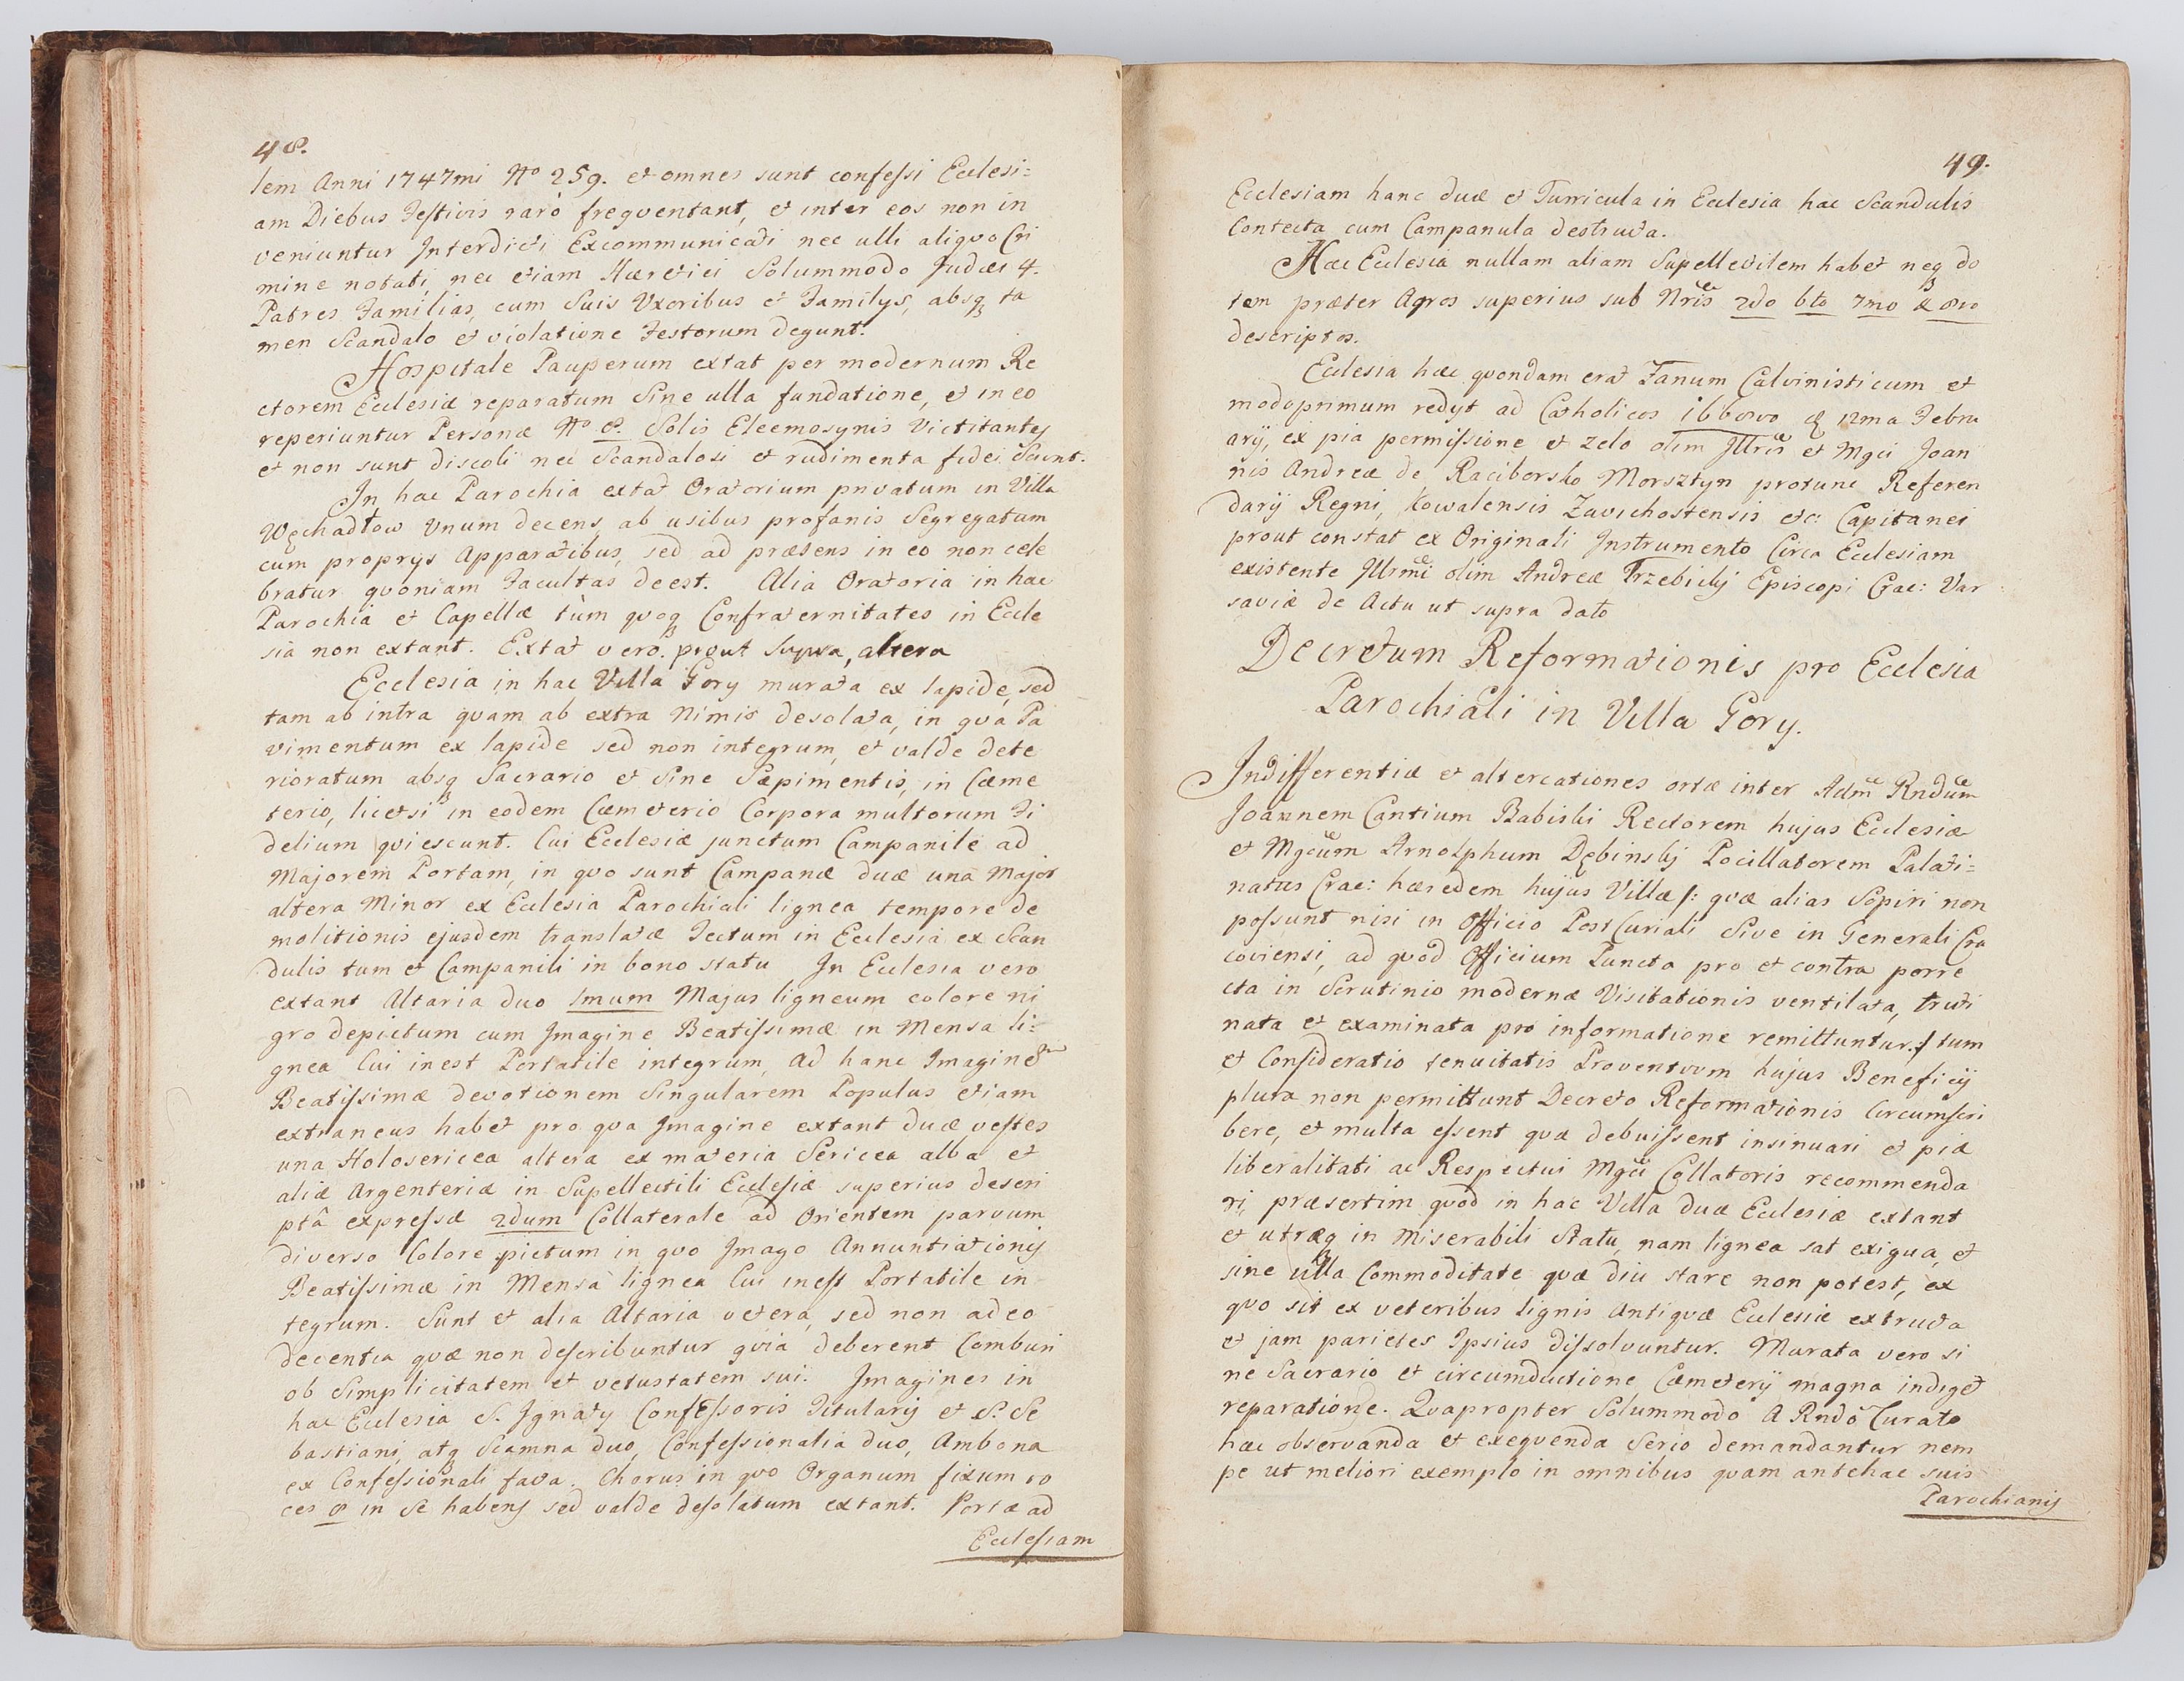 48.
lem Anni 1747mi No 259. et omnes sunt confeſsi Ecclesi=
am Diebus Feſtivis raro freqventant, et inter eos non in
veniuntur Interdicti Excommunicati nec ulli aliqvo Cri
mine notati, nec etiam Hæretici Solummodo Judæi 4.
Patres Familias, cum Suis Uxoribus et Familys, absq ta
men Scandalo et violatione Festorum degunt.
Hospitale Pauperum extat per modernum Re
ctorem Ecclesiæ reparatum Sine ulla fundatione, et in eo
reperiuntur Personæ No 8. Solis Eleemosynis Victitantes
et non sunt discoli nec Scandalosi et rudimenta fidei Sciunt.
In hac Parochia extat Oratorium privatum in Villa
Węchadłow Unum decens, ab usibus profanis Segregatum
cum proprys Apparatibus, sed ad præsens in eo non cele
bratur qvoniam Facultas deest. Alia Oratoria in hac
Parochia et Capellæ tùm qvoq Confraternitates in Eccle
sia non extant. Extat vero. prout Supra, altera
Ecclesia in hac Villa Gory murata ex lapide, sed
tam ab intra qvam ab extra Nimis desolata, in qvâ Pa
vimentum ex lapide sed non integrum, et valde dete
rioratum absq Sacrario et Sine Sæpimentis, in Cæme
terio, licet si in eodem Cæmeterio Corpora multorum Fi
delium qviescunt. Cui Ecclesiæ junctum Campanile ad
Majorem Portam, in qvo sunt Campanæ duæ una Major
altera Minor ex Ecclesia Parochiali lignea tempore de
molitionis ejusdem translatæ Tectum in Ecclesia ex Scan
dulis tum et Campanili in bono statu In Ecclesia vero
extant Altaria duo 1mum Majus ligneum colore ni
gro depictum cum Imagine Beatiſsimæ in Mensa li=
gnea Cui inest Portatile integrum, ad hanc Imaginem
Beatiſsimæ devotionem Singularem Populus etiam
extraneus habet pro qva Imagine extant duæ veſtes
una Holosericea altera ex materia Sericea alba et
aliæ Argenteriæ in Supellectili Eccleſiæ superius descri
ptâ expreſsæ 2dum Collaterale ad Orientem parvum
diverso Colore pictum in qvo Imago Annuntiationis
Beatiſsimæ in Mensa lignea Cui ineſt Portatile in
tegrum. Sunt et alia Altaria vetera, sed non adeo
decentia qvæ non deſcribuntur qvia deberent Comburi
ob Simplicitatem et vetustatem sui. Imagines in
hac Ecclesia S. Ignaty Confeſsoris Titulary et S. Se
bastiani, atq Scamna duo, Confeſsionalia duo, Ambona
ex Confeſsionali facta. Chorus in qvo Organum fixum vo
ces 8 in Se habens sed valde deſolatum extant. Portæ ad
Eccleſiam
49.
Ecclesiam hanc duæ et Turricula in Ecclesia hac Scandulis
Contecta cum Campanula destructa.
Hæc Ecclesia nullam aliam Supellectilem habet neq do
tem præter Agros superius sub Nris 2do 6to 7mo & 8vo
descriptos.
Ecclesia hæc qvondam erat Fanum Calvinisticum et
modoprimum redyt ad Catholicos 1668vo & 12ma Febru
arÿ, ex pia permiſsione et zelo olim Illris et Mgci Joan
nis Andreæ de Raciborsko Morsztyn protunc Referen
darÿ Regni, Kowalensis Zavichostensis etc: Capitanei
prout constat ex Originali Instrumento Circa Ecclesiam
existente Illrmi olim Andreæ Trzebicky Episcopi Crac: Var
saviæ de Actu ut supra dato
Decretum Reformationis pro Ecclesia
Parochiali in Villa Gory.
Indifferentiæ et altercationes ortæ inter Adm Rndum
Joannem Cantium Babiski Rectorem hujus Ecclesiæ
et Mgcum Arnolphum Dębinsky Pocillatorem Palati=
natus Crac: hæredem hujus Villæ /: qvæ alias Sopiri non
poſsunt nisi in Officio Post Curiali Sive in Generali Cra
coviensi, ad qvod Officium Puncta pro et contra porre
cta in Scrutinio modernæ Visitationis ventilata, truti
nata et examinata pro informatione remittuntur :/ tum
et Consideratio tenuitatis Proventuum hujus Beneficÿ
plura non permittunt Decreto Reformationis Circumſcri
bere, et multa eſsent qvæ debuiſsent insinuari et piæ
liberalitati ac Respectui Mgci Collatoris recommenda
ri, præsertim qvod in hac Villa duæ Ecclesiæ extant
et utræq in Miserabili Statu, nam lignea sat exigua, et
sine ulla Commoditate qvæ diu stare non potest, ex
qvo sit ex veteribus lignis Antiqvæ Ecclesiæ extructa
et jam parietes Ipsius diſsolvuntur. Murata vero si
ne Sacrario et circumductione Cæmeterÿ magna indiget
reparatione. Qvapropter Solummodo A Rndo Curato
hæc observanda et exeqvenda Serio demandantur nem
pe ut meliori exemplo in omnibus qvam antehac suis
Parochianis